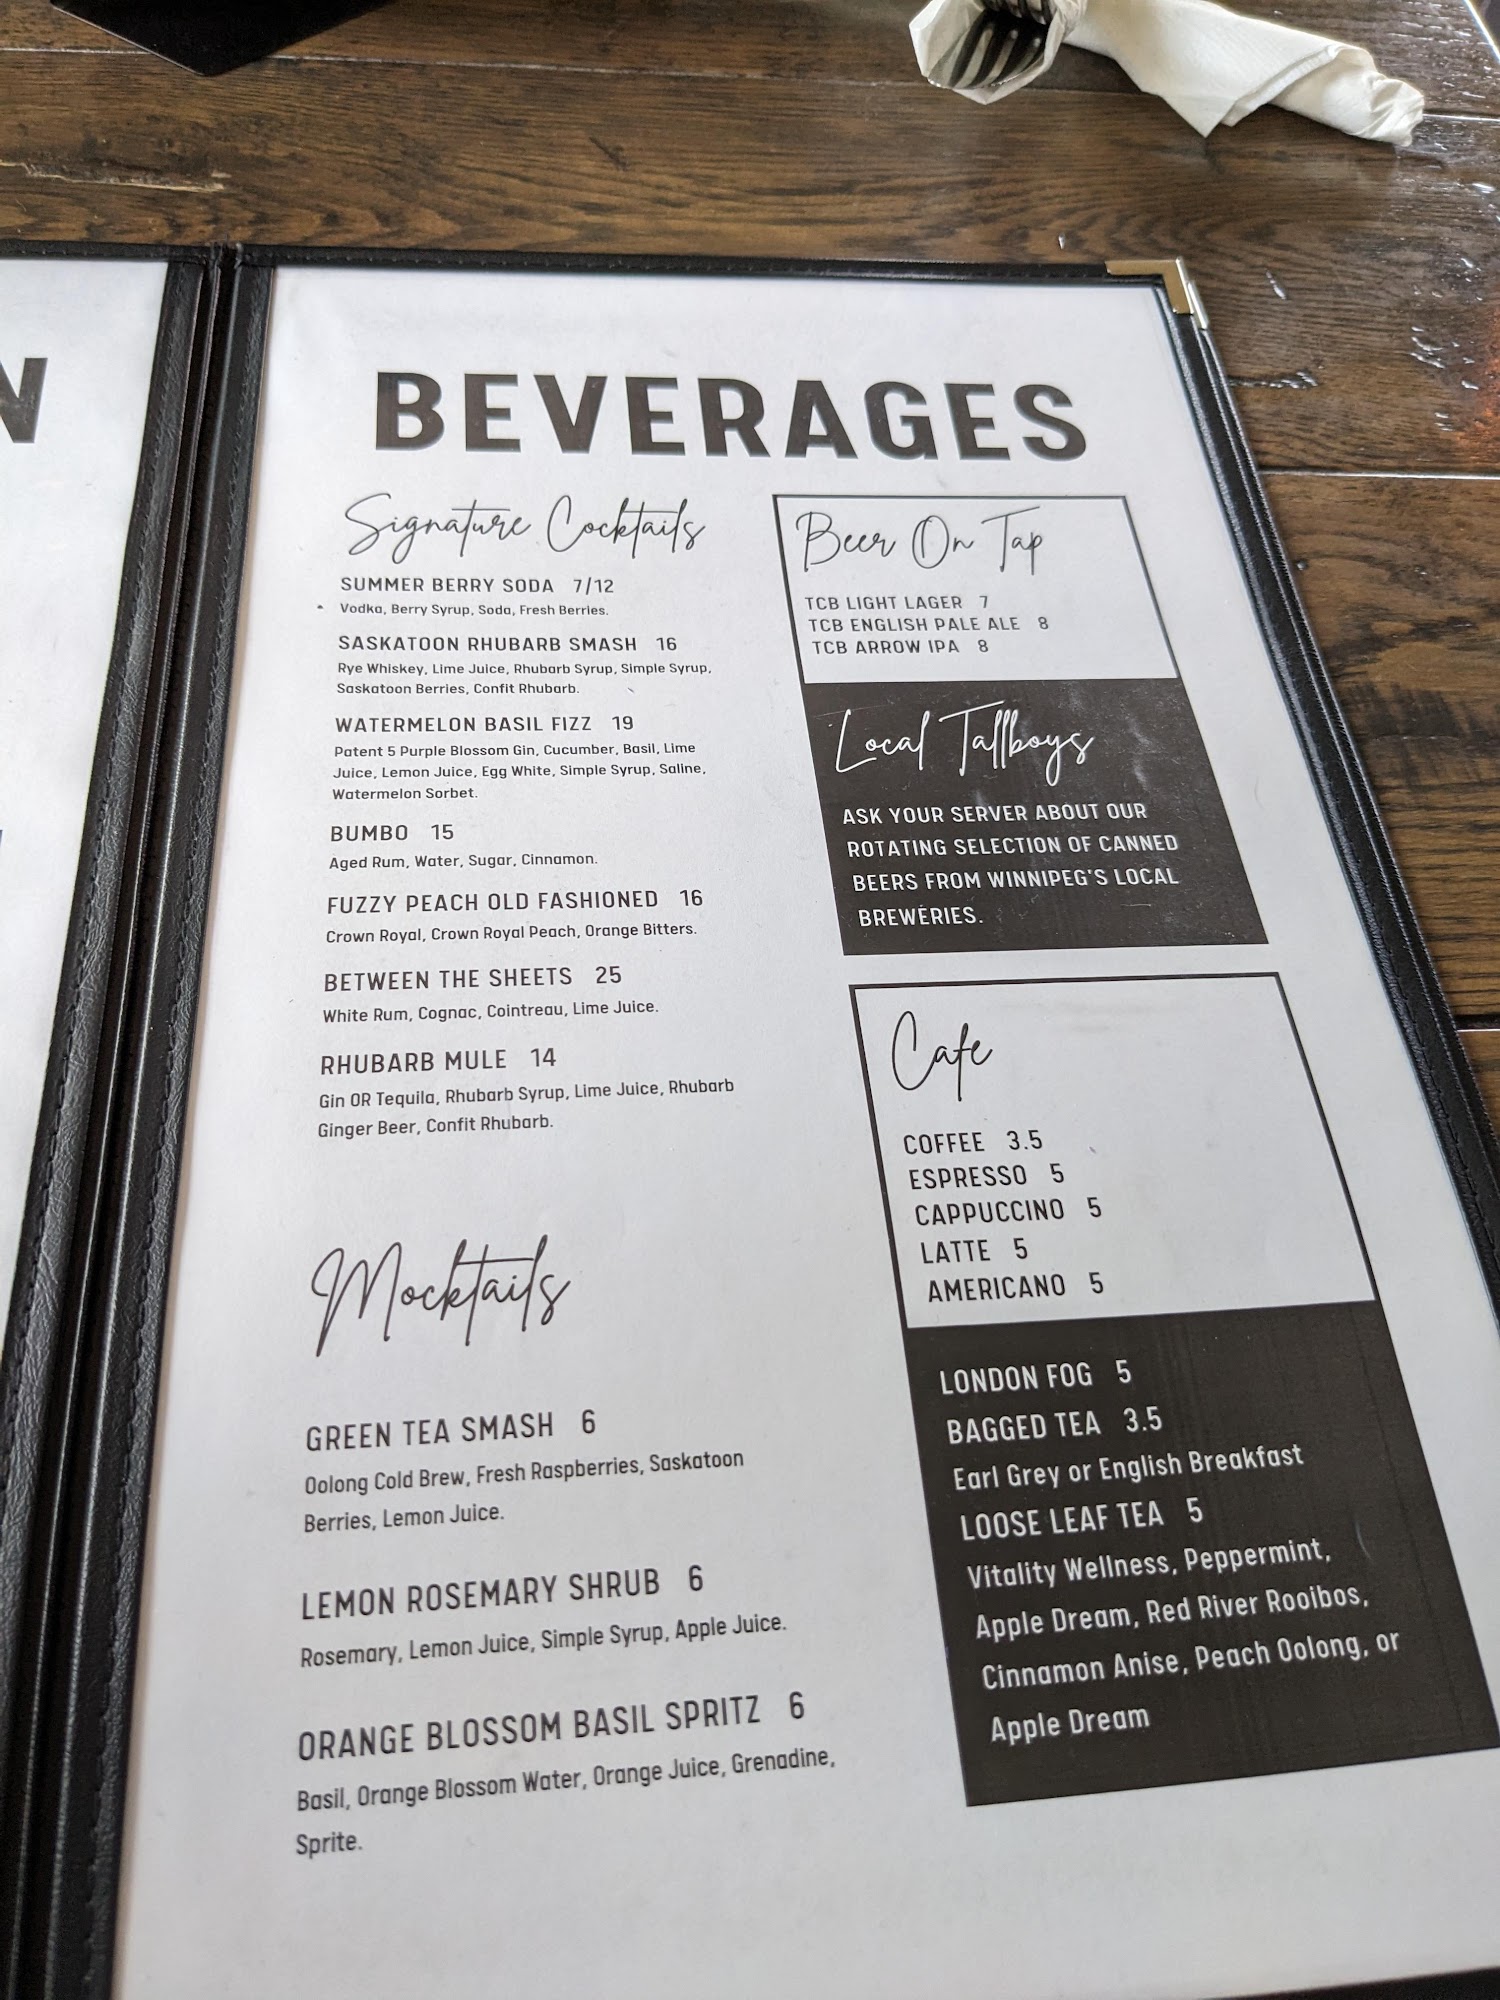 N
BEVERAGES
Signature Cocktails
SUMMER BERRY SODA 7/12
Vodka, Berry Syrup, Soda, Fresh Berries.
SASKATOON RHUBARB SMASH 16
Rye Whiskey, Lime Juice, Rhubarb Syrup, Simple Syrup,
Saskatoon Berries, Confit Rhubarb.
WATERMELON BASIL FIZZ 19
Patent 5 Purple Blossom Gin, Cucumber, Basil, Lime
Juice, Lemon Juice, Egg White, Simple Syrup, Saline,
Watermelon Sorbet.
BUMBO 15
Aged Rum, Water, Sugar, Cinnamon.
FUZZY PEACH OLD FASHIONED 16
Crown Royal, Crown Royal Peach, Orange Bitters.
BETWEEN THE SHEETS 25
White Rum, Cognac, Cointreau, Lime Juice.
RHUBARB MULE 14
Gin OR Tequila, Rhubarb Syrup, Lime Juice, Rhubarb
Ginger Beer, Confit Rhubarb.
Mocktails
GREEN TEA SMASH 6
Oolong Cold Brew, Fresh Raspberries, Saskatoon
Berries, Lemon Juice.
LEMON ROSEMARY SHRUB 6
Rosemary, Lemon Juice, Simple Syrup, Apple Juice.
ORANGE BLOSSOM BASIL SPRITZ 6
Basil, Orange Blossom Water, Orange Juice, Grenadine,
Sprite.
Beer On Tap
TCB LIGHT LAGER 7
TCB ENGLISH PALE ALE 8
TCB ARROW IPA 8
Local Tallboys
ASK YOUR SERVER ABOUT OUR
ROTATING SELECTION OF CANNED
BEERS FROM WINNIPEG'S LOCAL
BREWERIES.
Cafe
COFFEE 3.5
ESPRESSO 5
CAPPUCCINO 5
LATTE 5
AMERICANO 5
LONDON FOG 5
BAGGED TEA 3.5
Earl Grey or English Breakfast
LOOSE LEAF TEA 5
Vitality Wellness, Peppermint,
Apple Dream, Red River Rooibos,
Cinnamon Anise, Peach Oolong, or
Apple Dream